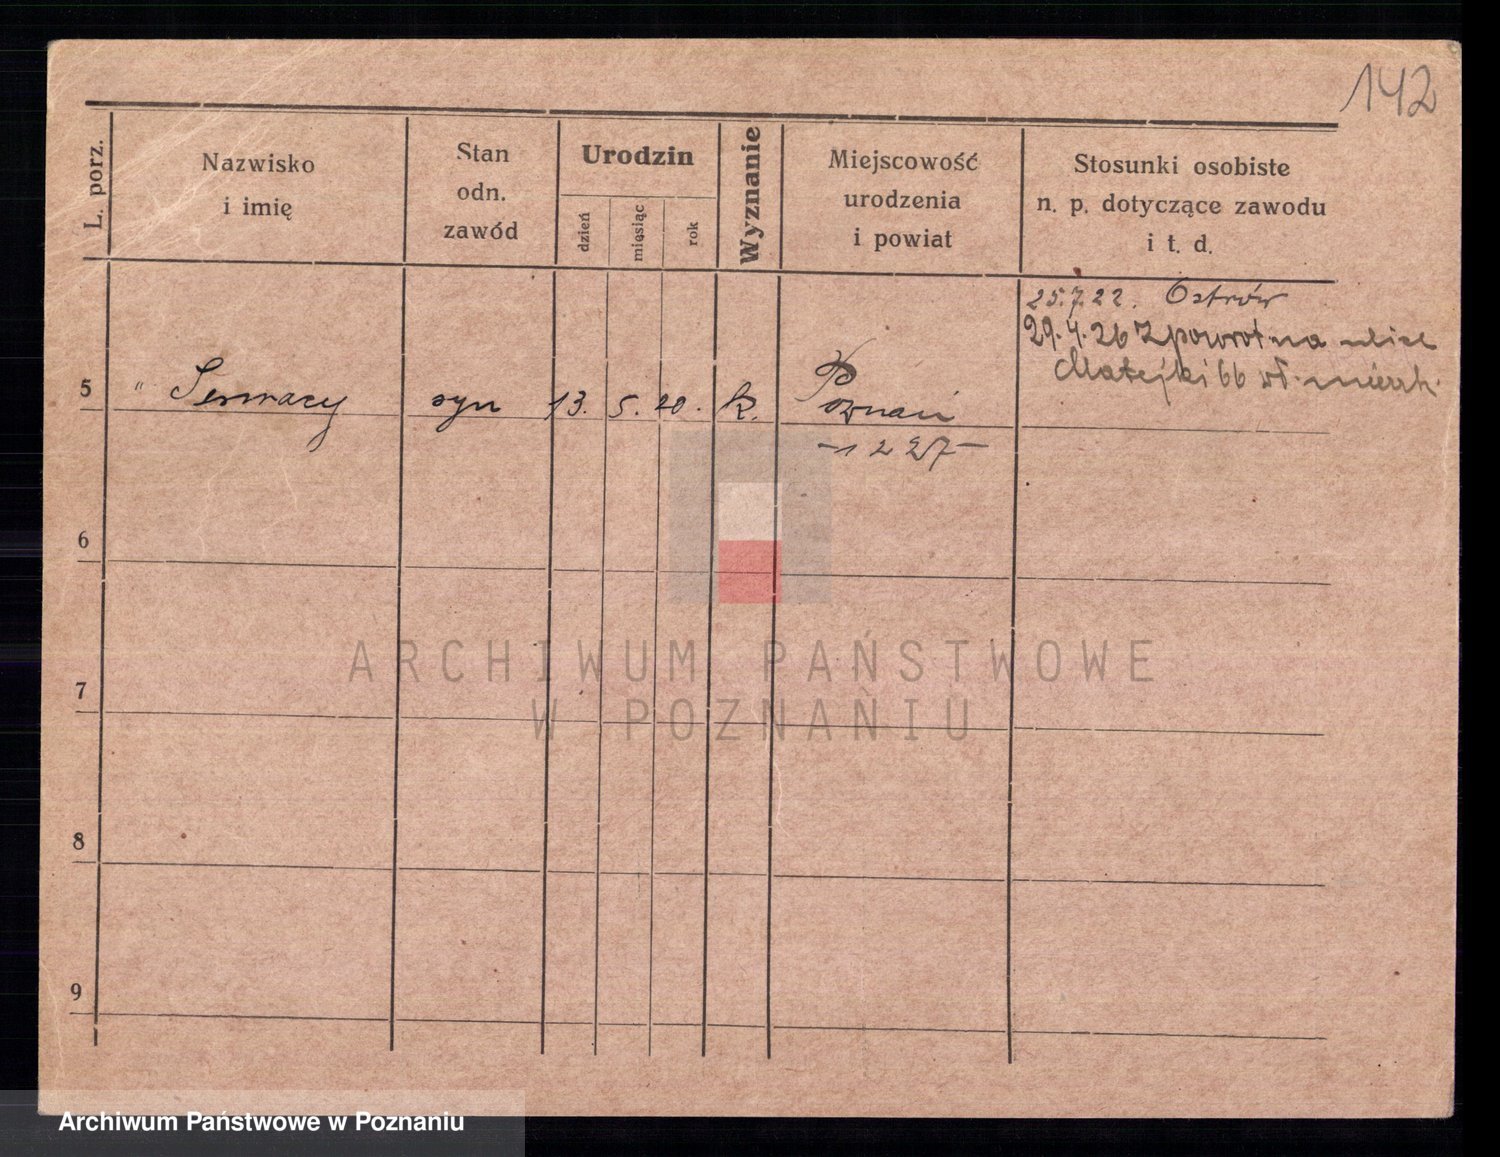 142
L. porz.
Nazwisko
i imię
Stan
odn.
zawód
Urodzin
dzień
miesiąc
rok
Wyznanie
Miejscowość
urodzenia
i powiat
Stosunki osobiste
n. p. dotyczące zawodu
i t. d.
25.7.22. Ostrów
29.4.26 Z powrot na
Matejki 66
5 " Serwacy syn 13. 5. 20. k. Poznań
-1227-
6
7
8
9
ARCHIWUM PAŃSTWOWE
W POZNANIU
Archiwum Państwowe w Poznaniu